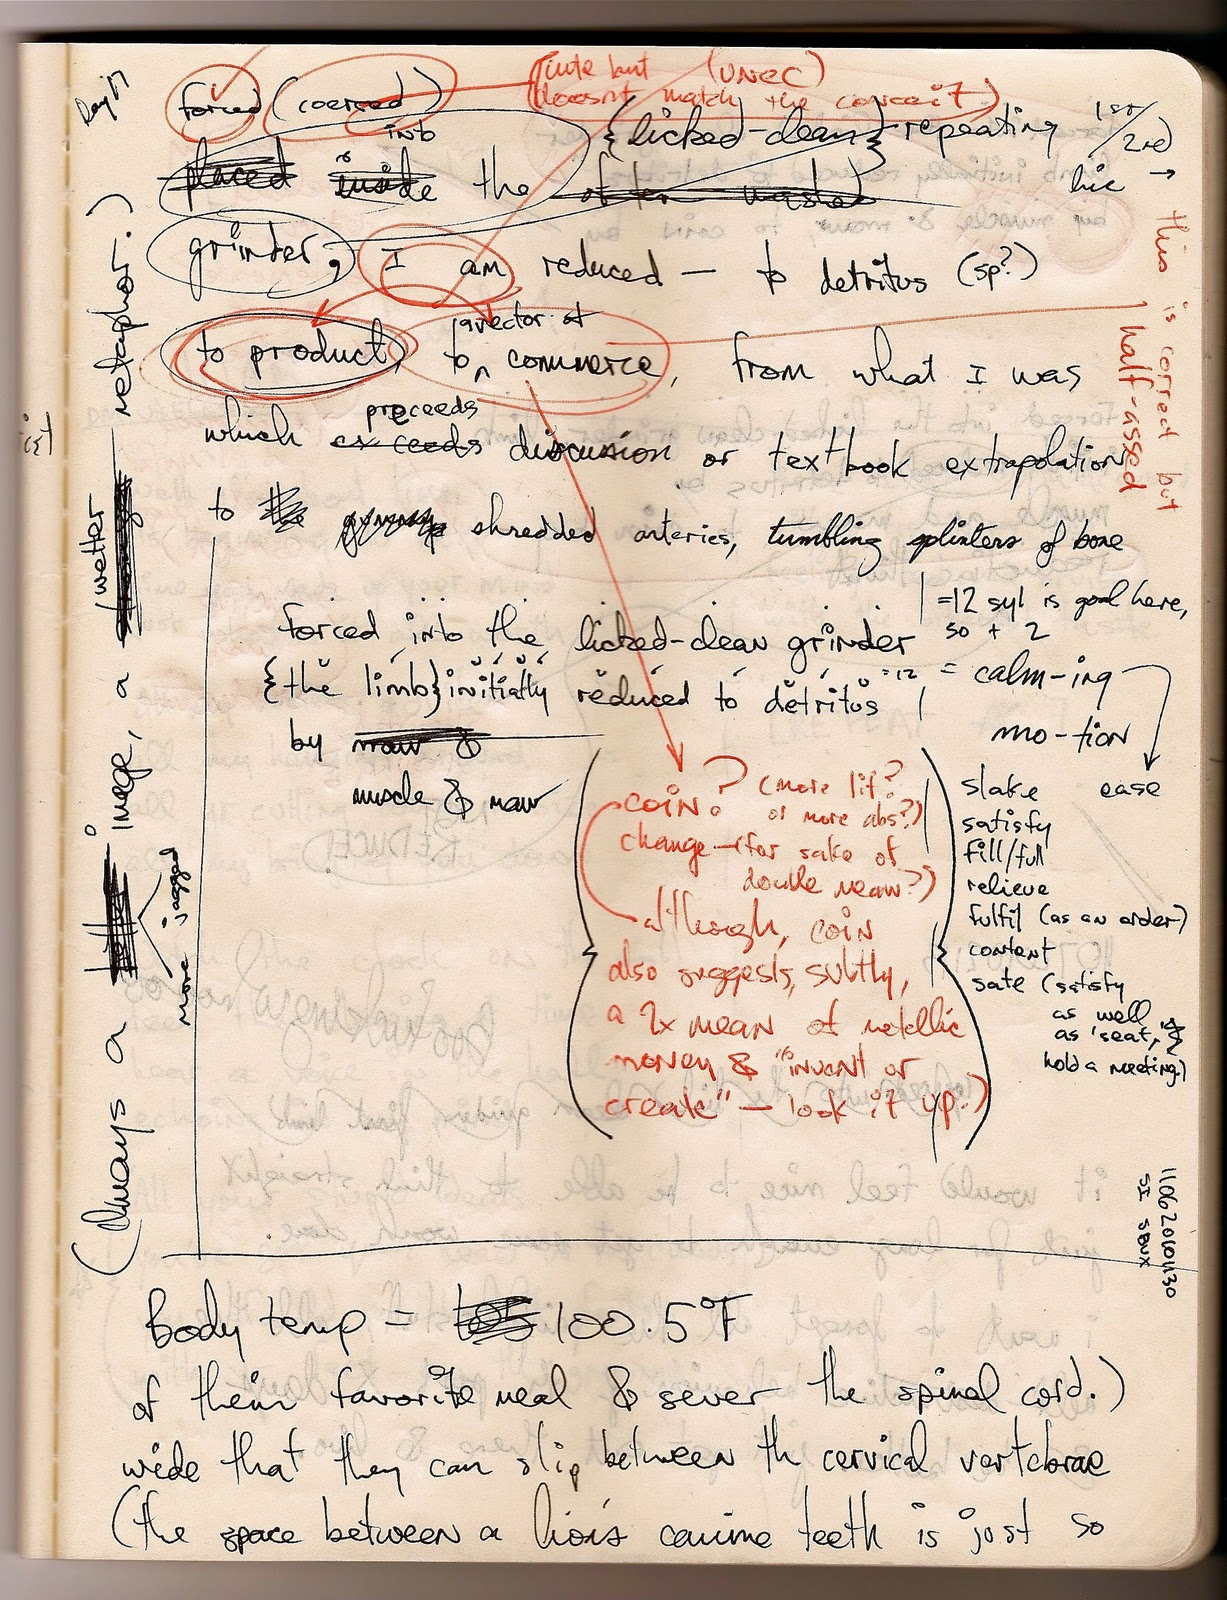 Day 17
forced (coerced)
(cute but (UNEC)
doesn't match the conceit.)
into
{licked-clean} repeating
1st/2nd
placed inside the often washed
lic →
this is correct but
half-assed
grinder, I am reduced — to detritus (sp?)
a vector of
to product, to ^ commerce, from what I was
proceeds
which exceeds discussion or textbook extrapolation
to the shredded arteries, tumbling splinters of bone
forced into the licked-clean grinder
=12 syl is good here,
so + 2
{the limb} initially reduced to detritus =12
= calm-ing
mo-tion
ease
by maw &
muscle & maw
coin? (more lit?
or more abs?)
change—(for sake of
double mean?)
although, coin
also suggests, subtly,
a 2x mean of metallic
money & "invent or
create" — look it up.)
slake
satisfy
fill/full
relieve
fulfil (as an order)
content
sate (satisfy
as well
as 'seat,' &
hold a meeting.)
(Always a image, a wetter metaphor.)
more jagged
110620101130
SI SBUX
Body temp = 100.5°F
of their favorite meal & sever the spinal cord.)
wide that they can slip between th cervical vertebrae
(the space between a lion's canine teeth is just so